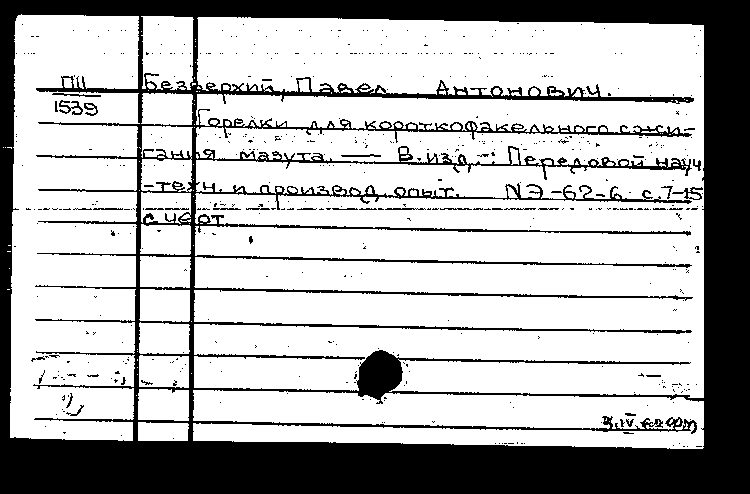 ПII Безверхий, Павел Антонович.
1539
Горелки для короткофакельного сжи-
гания мазута. — В изд.: Передовой науч.
-техн. и производ. опыт. №Э-62-6 с.7-15
с черт.